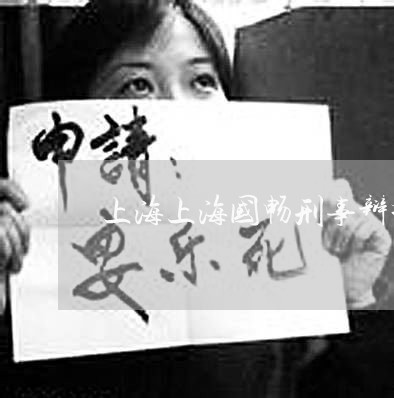 申請：
上海上海國畅刑事辩
安乐死